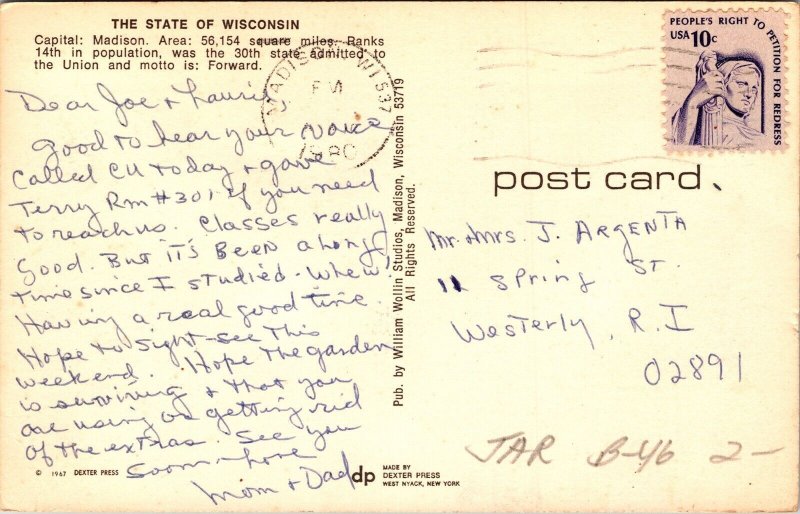 THE STATE OF WISCONSIN
Capital: Madison. Area: 56,154 square miles. Ranks
14th in population, was the 30th state admitted to
the Union and motto is: Forward.
Dear Joe + Laurie,
Good to hear your voice
Called CU today + gave
Terry Rm #301 if you need
to reach us. Classes really
good. But it's been a long
time since I studied. Whew!
Having a real good time.
Hope to sight-see this
weekend. Hope the garden
is surviving + that you
are using or getting rid
of the extras. See you
Soon - love
Mom + Dad
© 1967 DEXTER PRESS
MADISON, WI 537
PM
1980
Pub. by William Wollin Studios, Madison, Wisconsin 53719
All Rights Reserved.
dp
MADE BY
DEXTER PRESS
WEST NYACK, NEW YORK
PEOPLE'S RIGHT TO PETITION FOR REDRESS
USA 10c
post card
Mr. + Mrs. J. ARGENTA
11 Spring St.
Westerly, R.I
02891
JAR B-46 2-